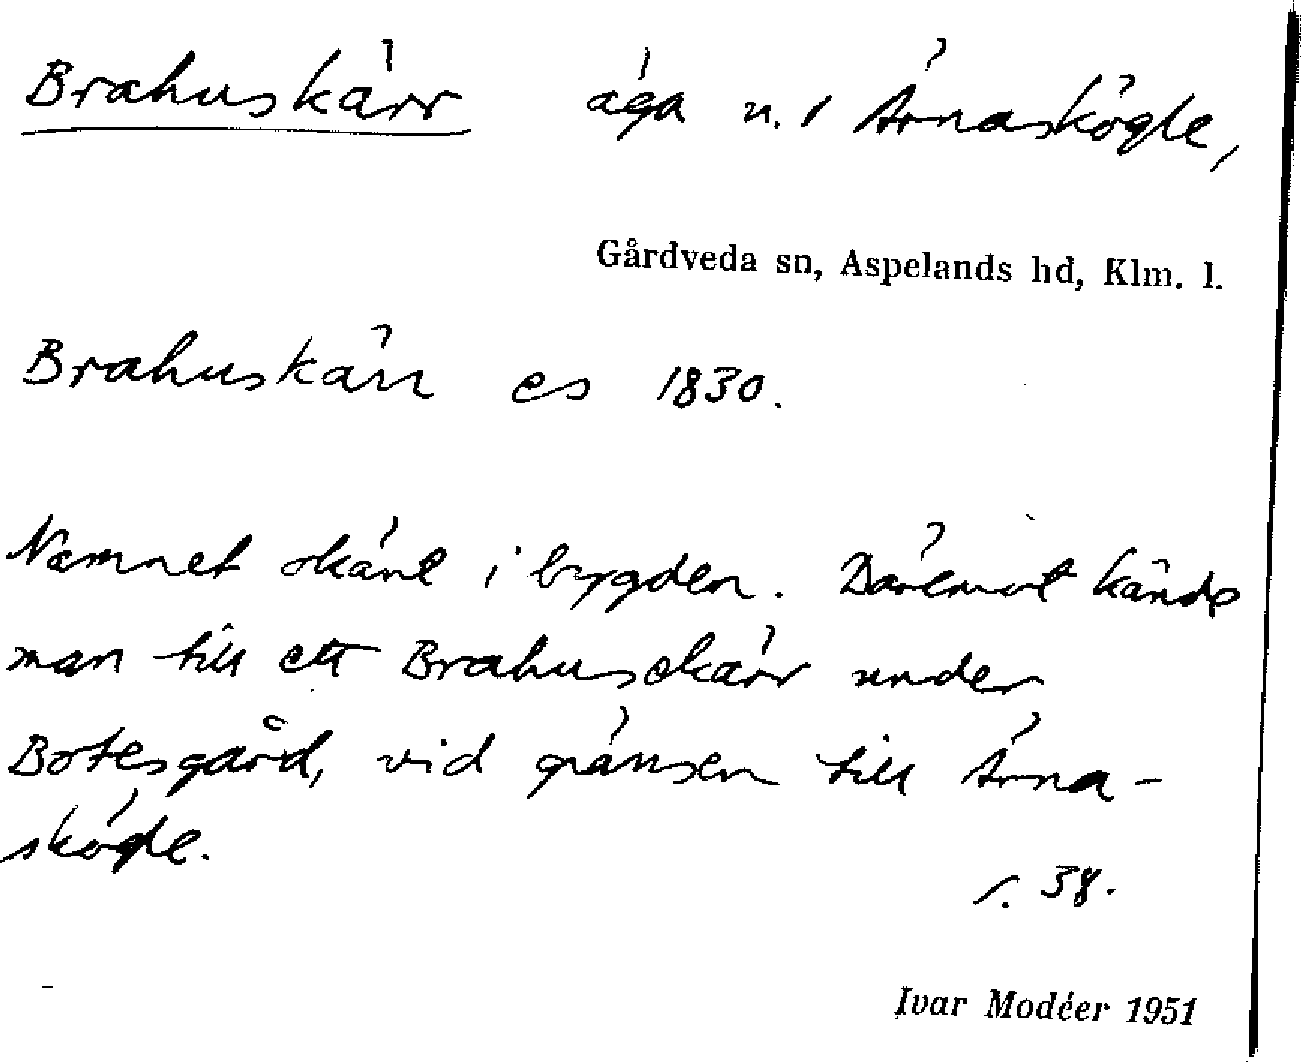 Brahuskärr äga n. 1 Ärnaskögle,
Gårdveda sn, Aspelands hd, Klm. l.
Brahuskärr es 1830.
Namnet okänt i bygden. Däremot kände
man till ett Brahusekärr under
Botesgård, vid gränsen till Ärna-
skögle.
s. 38.
Ivar Modéer 1951